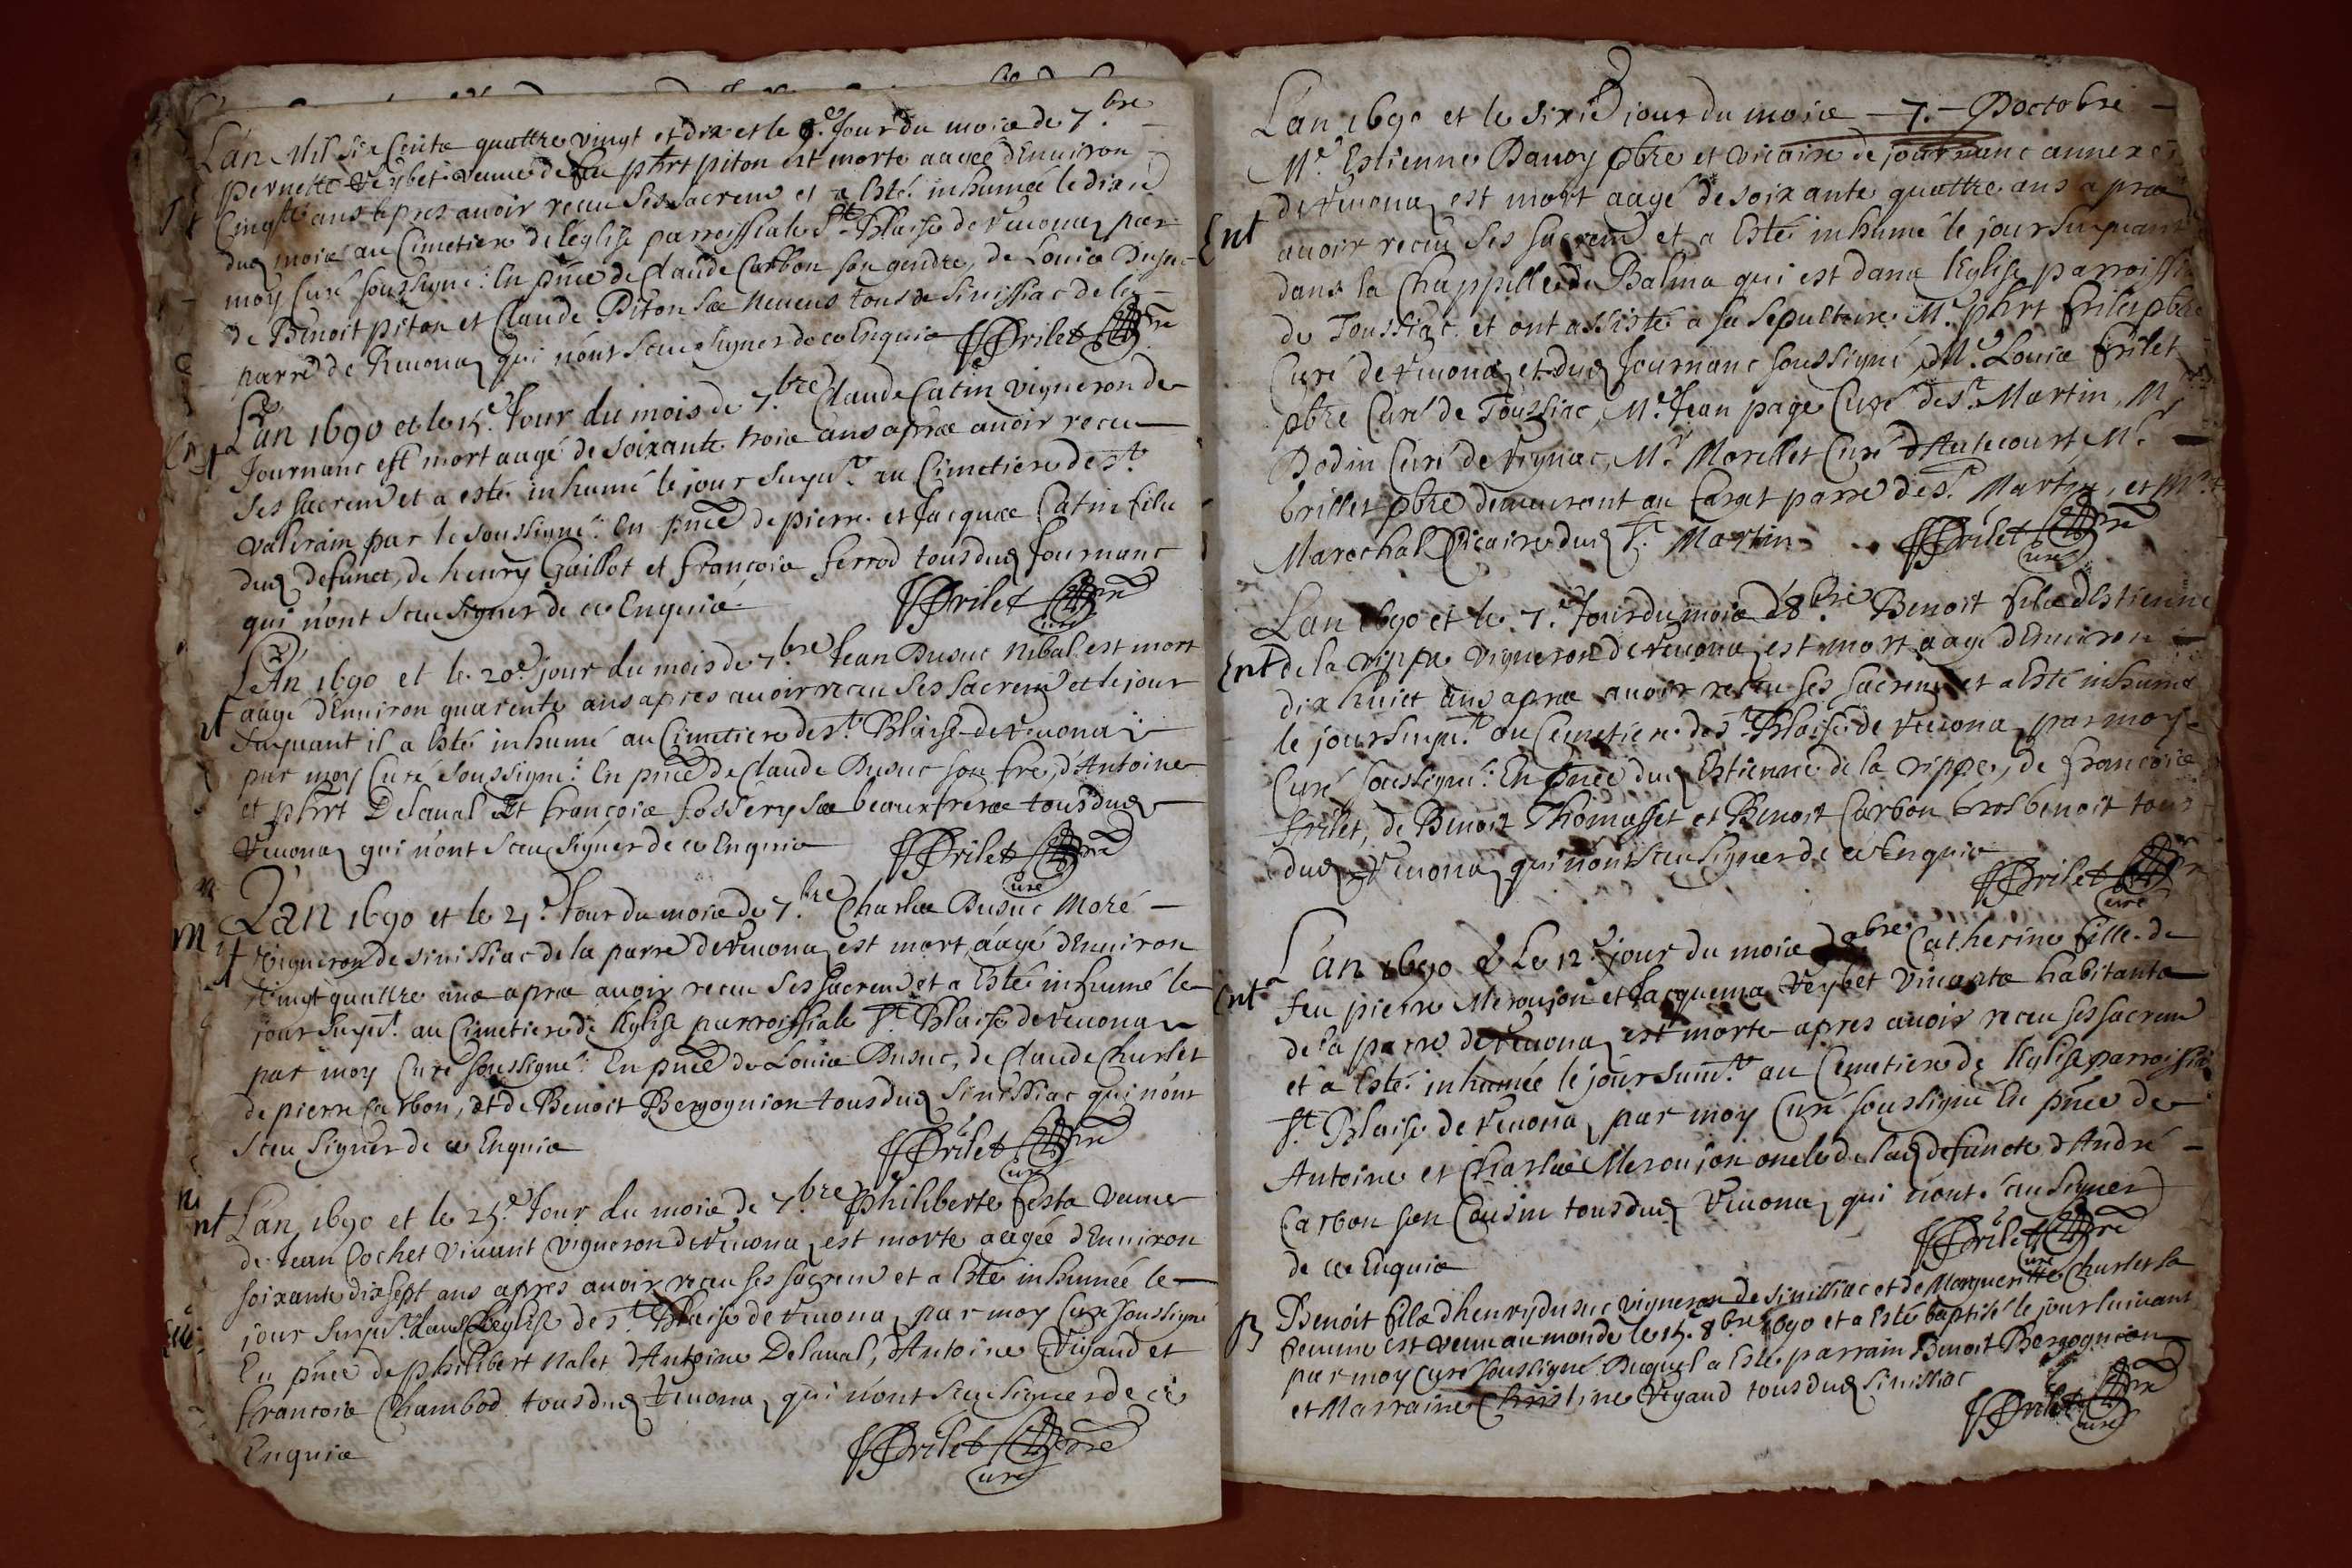 L'an Mil six Cents quattre vingt et dix et le 8.e Jour du mois de 7.bre
pernette Veybet veuve de feu phrt piton est morte aagée d'Environ
Cinqte ans apres avoir receu ses sacrem et a esté inhumée le dixe
dud mois au Cimetiere de l'eglise parroissiale St Blaise de Revona par
moy Curé soussigné: En pnce de Claude Carbon son gendre, de Louis Dusuc
de Benoit piton et Claude Piton ses neveus tous de Sinissiac de la
parre de Revona qui n'ont sceu signer de ce Enquis Frilet pbre
Ent L'an 1690 et le 15.e Jour du mois de 7.bre Claude Catin vigneron de
Journans est mort aagé de soixante trois ans apres avoir receu
ses sacrem et a esté inhumé le jour suyvt au Cimetiere de St
valerain par le soussigné: En pnce de pierre et Jacques Catin fils
dud defunct, de henry Gaillot et françois ferrod tous dud Journans
qui n'ont sceu signer de ce Enquis Frilet pbre
Curé
L'An 1690 et le 20.e jour du mois de 7.bre Jean Dusuc Nibal est mort
aagé d'Environ quarente ans apres avoir receu ses sacrem et le jour
suyvant il a esté inhumé au Cimetiere de St Blaise de Revona
par moy Curé soussigné: En pnce de Claude Dusuc son fre, d'Antoine
et phrt Delaval Et françois fossery ses beaux freres tous dud
Revona qui n'ont sceu signer de ce Enquis Frilet pbre
Curé
L'an 1690 et le 21.e Jour du mois de 7.bre Charles Dusuc Moré
vigneron de Sinissiac de la parre de Revona est mort, aagé d'Environ
vingt quattre ans apres avoir receu ses sacrem et a esté inhumé le
jour suyvt au Cimetiere de l'Eglise parroissiale St Blaise de Revona
par moy Curé soussigné: En pnce de Louis Dusuc, de Claude Churlet
de pierre Carbon, Et de Benoit Bergognion tous dud Sinissiac qui n'ont
sceu signer de ce Enquis Frilet pbre
Curé
L'an 1690 et le 25.e Jour du mois de 7.bre Philiberte festa veuve
de Jean Cochet vivant vigneron de Revona est morte aagée d'Environ
soixante dix sept ans apres avoir receu ses sacrem et a esté inhumée le
jour suyvt dans l'eglise de St Blaise de Revona par moy Curé soussigné
En pnce de philibert Nalet d'Antoine Delaval, d'Antoine Vigaud et
françois Chambod tous dud Revona qui n'ont sceu signer de ce
Enquis Frilet pbre
Curé
L'an 1690 et le sixie jour du mois 7. D'octobre
Mre Estienne Davoy pbre et vicaire de journans annexe
de Revona est mort aagé de soixante quattre ans apres
Ent avoir receu ses sacrem et a esté inhumé le jour suyvant
dans la Chappelle de Balma qui est dans l'Eglise parroissi
de Toussiac et ont assisté a sa sepulture Mre phrt frilet pbre
Curé de Revona et dud Journans soussigné, Mre Louis frilet
pbre Curé de Toussiac, Mre Jean page Curé de St Martin, Mr
Dodin Curé de Rignac, Mr Morellet Curé d'Autecourt, Mr
brillet pbre demeurant au parre de St Martin, et Mr
Marechal Vicaire dud St Martin Frilet pbre
Curé
L'an 1690 et le 7.e Jour du mois d'8.bre Benoit fils d'Estienne
Ent de la rippe vigneron de Revona est mort aagé d'Environ
dix huict ans apres avoir receu ses sacrem et a esté inhumé
le jour suyvt au Cimetiere de St Blaise de Revona par moy
Curé soussigné: En pnce dud Estienne de la rippe, de françois
frilet, de Benoit Thomasset et Benoit Carbon bros benoit tous
dud Revona qui n'ont sceu signer de ce Enquis Frilet pbre
Curé
L'an 1690 & Le 12.e jour du mois d'8bre Catherine fille de
Ent feu pierre Meroujon et Jacquema Veybet vivants habitants
de la parre de Revona est morte apres avoir receu ses sacrem
et a esté inhumée le jour suivt au Cimetiere de l'Eglise parroissi
St Blaise de Revona par moy Curé soussigné En pnce de
Antoine et Charles Meroujon oncle de lad defuncte d'André
Carbon son Cousin tous dud Revona qui n'ont sceu signer
de ce Enquis Frilet pbre
Curé
B Benoit fils d'henry dusuc vigneron de Sinissiac et de Margueritte Churlet sa
femme est venu au monde le 15. 8.bre 1690 et a esté baptisé le jour suivant
par moy Curé soussigné Duquel a esté parrain Benoit Bergognion
et Marraine Christine Vigaud tous dud Sinissiac
Frilet pbre
Curé